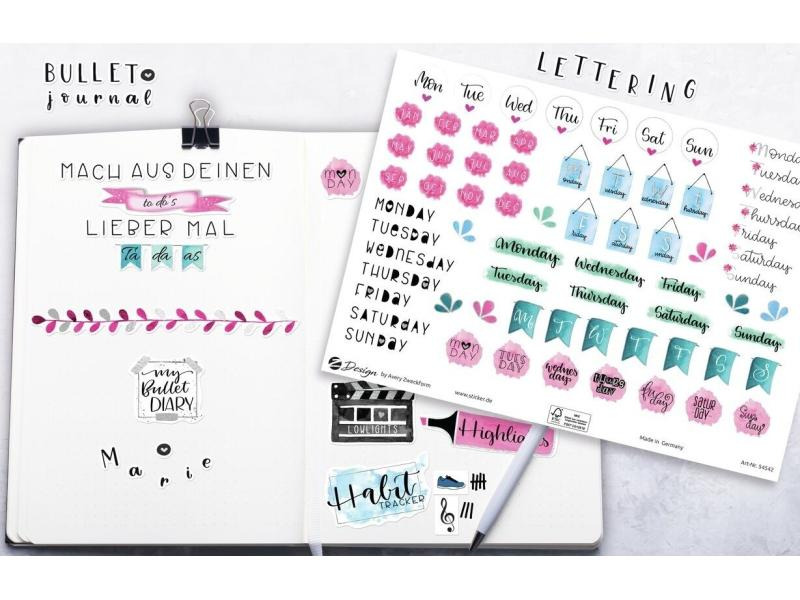 BULLET
journal
LETTERING
MACH AUS DEINEN
to do's
LIEBER MAL
Ta da as
my
Bullet
DIARY
Marie
MON
DAY
LOWLIGHTS
Highlights
Habit
TRACKER
Mon Tue Wed Thu Fri Sat Sun
JAN FEB MAR APR
MAY JUN JUL AUG
SEP OCT NOV DEC
Monday Tuesday Wednesday Thursday
Friday Saturday Sunday
MONDAY
TUESDAY
WEDNESDAY
THURSDAY
FRIDAY
SATURDAY
SUNDAY
Monday Wednesday Friday
Tuesday Thursday Saturday Sunday
Monday
Tuesday
Wednesday
Thursday
Friday
Saturday
Sunday
M T W T F S S
MON DAY TUES DAY wednes day THURS DAY fri day SATUR DAY Sun day
Z Design by Avery Zweckform
www.sticker.de
FSC
Made in Germany
Art-Nr. 54542